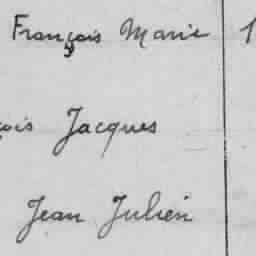 François Marie 1
çois Jacques
Jean Julien